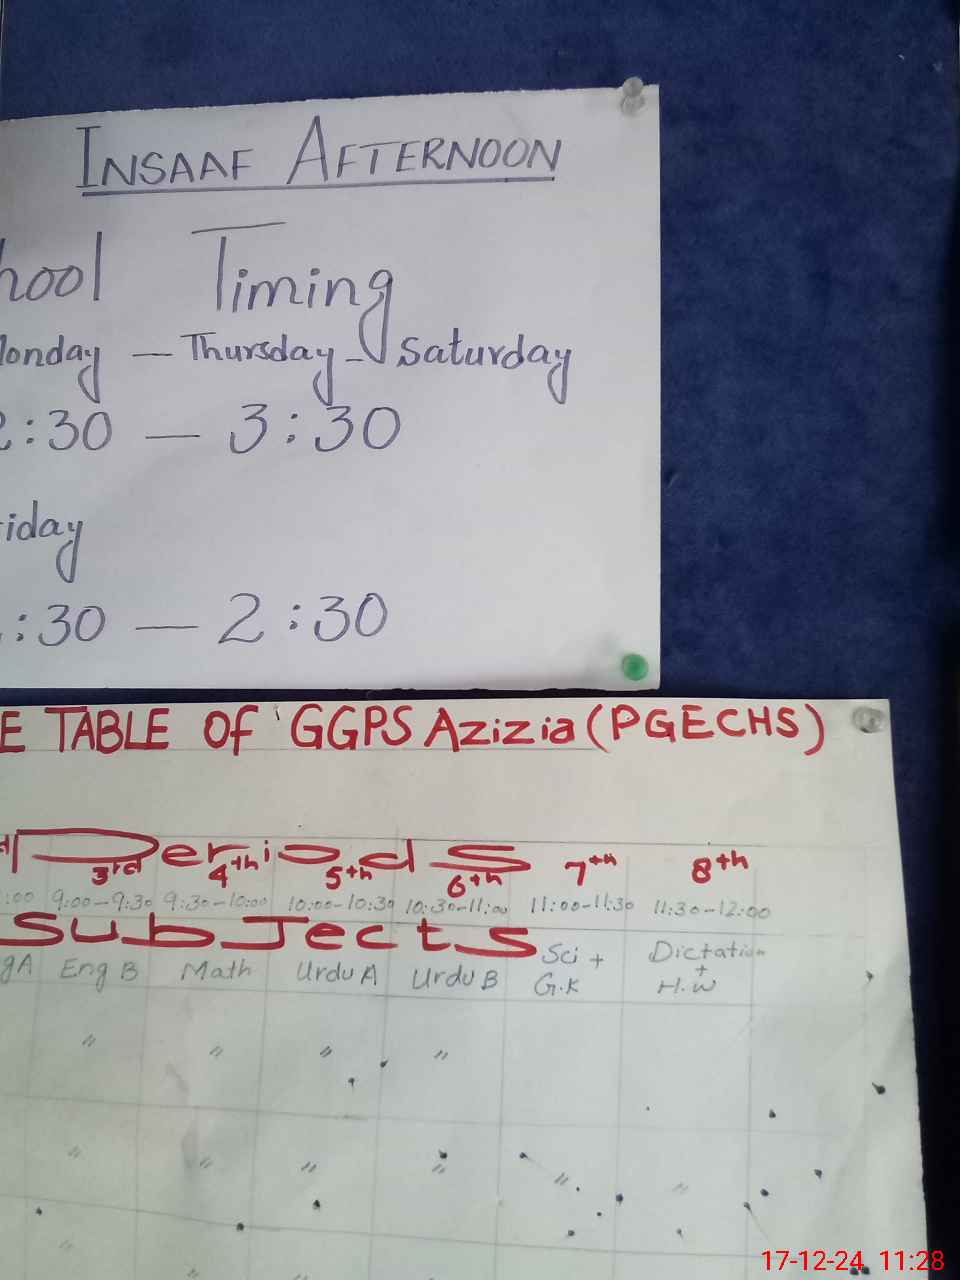 INSAAF AFTERNOON
hool Timing
onday — Thursday - Saturday
:30 — 3:30
iday
:30 — 2:30
E TABLE OF GGPS Azizia (PGECHS)
Periods
3rd 4th 5th 6th 7th 8th
:00 9:00-9:30 9:30-10:00 10:00-10:30 10:30-11:00 11:00-11:30 11:30-12:00
SubJects
gA Eng B Math Urdu A Urdu B Sci + G.K Dictation + H.W
" " " "
" " " " "
" "
17-12-24 11:28